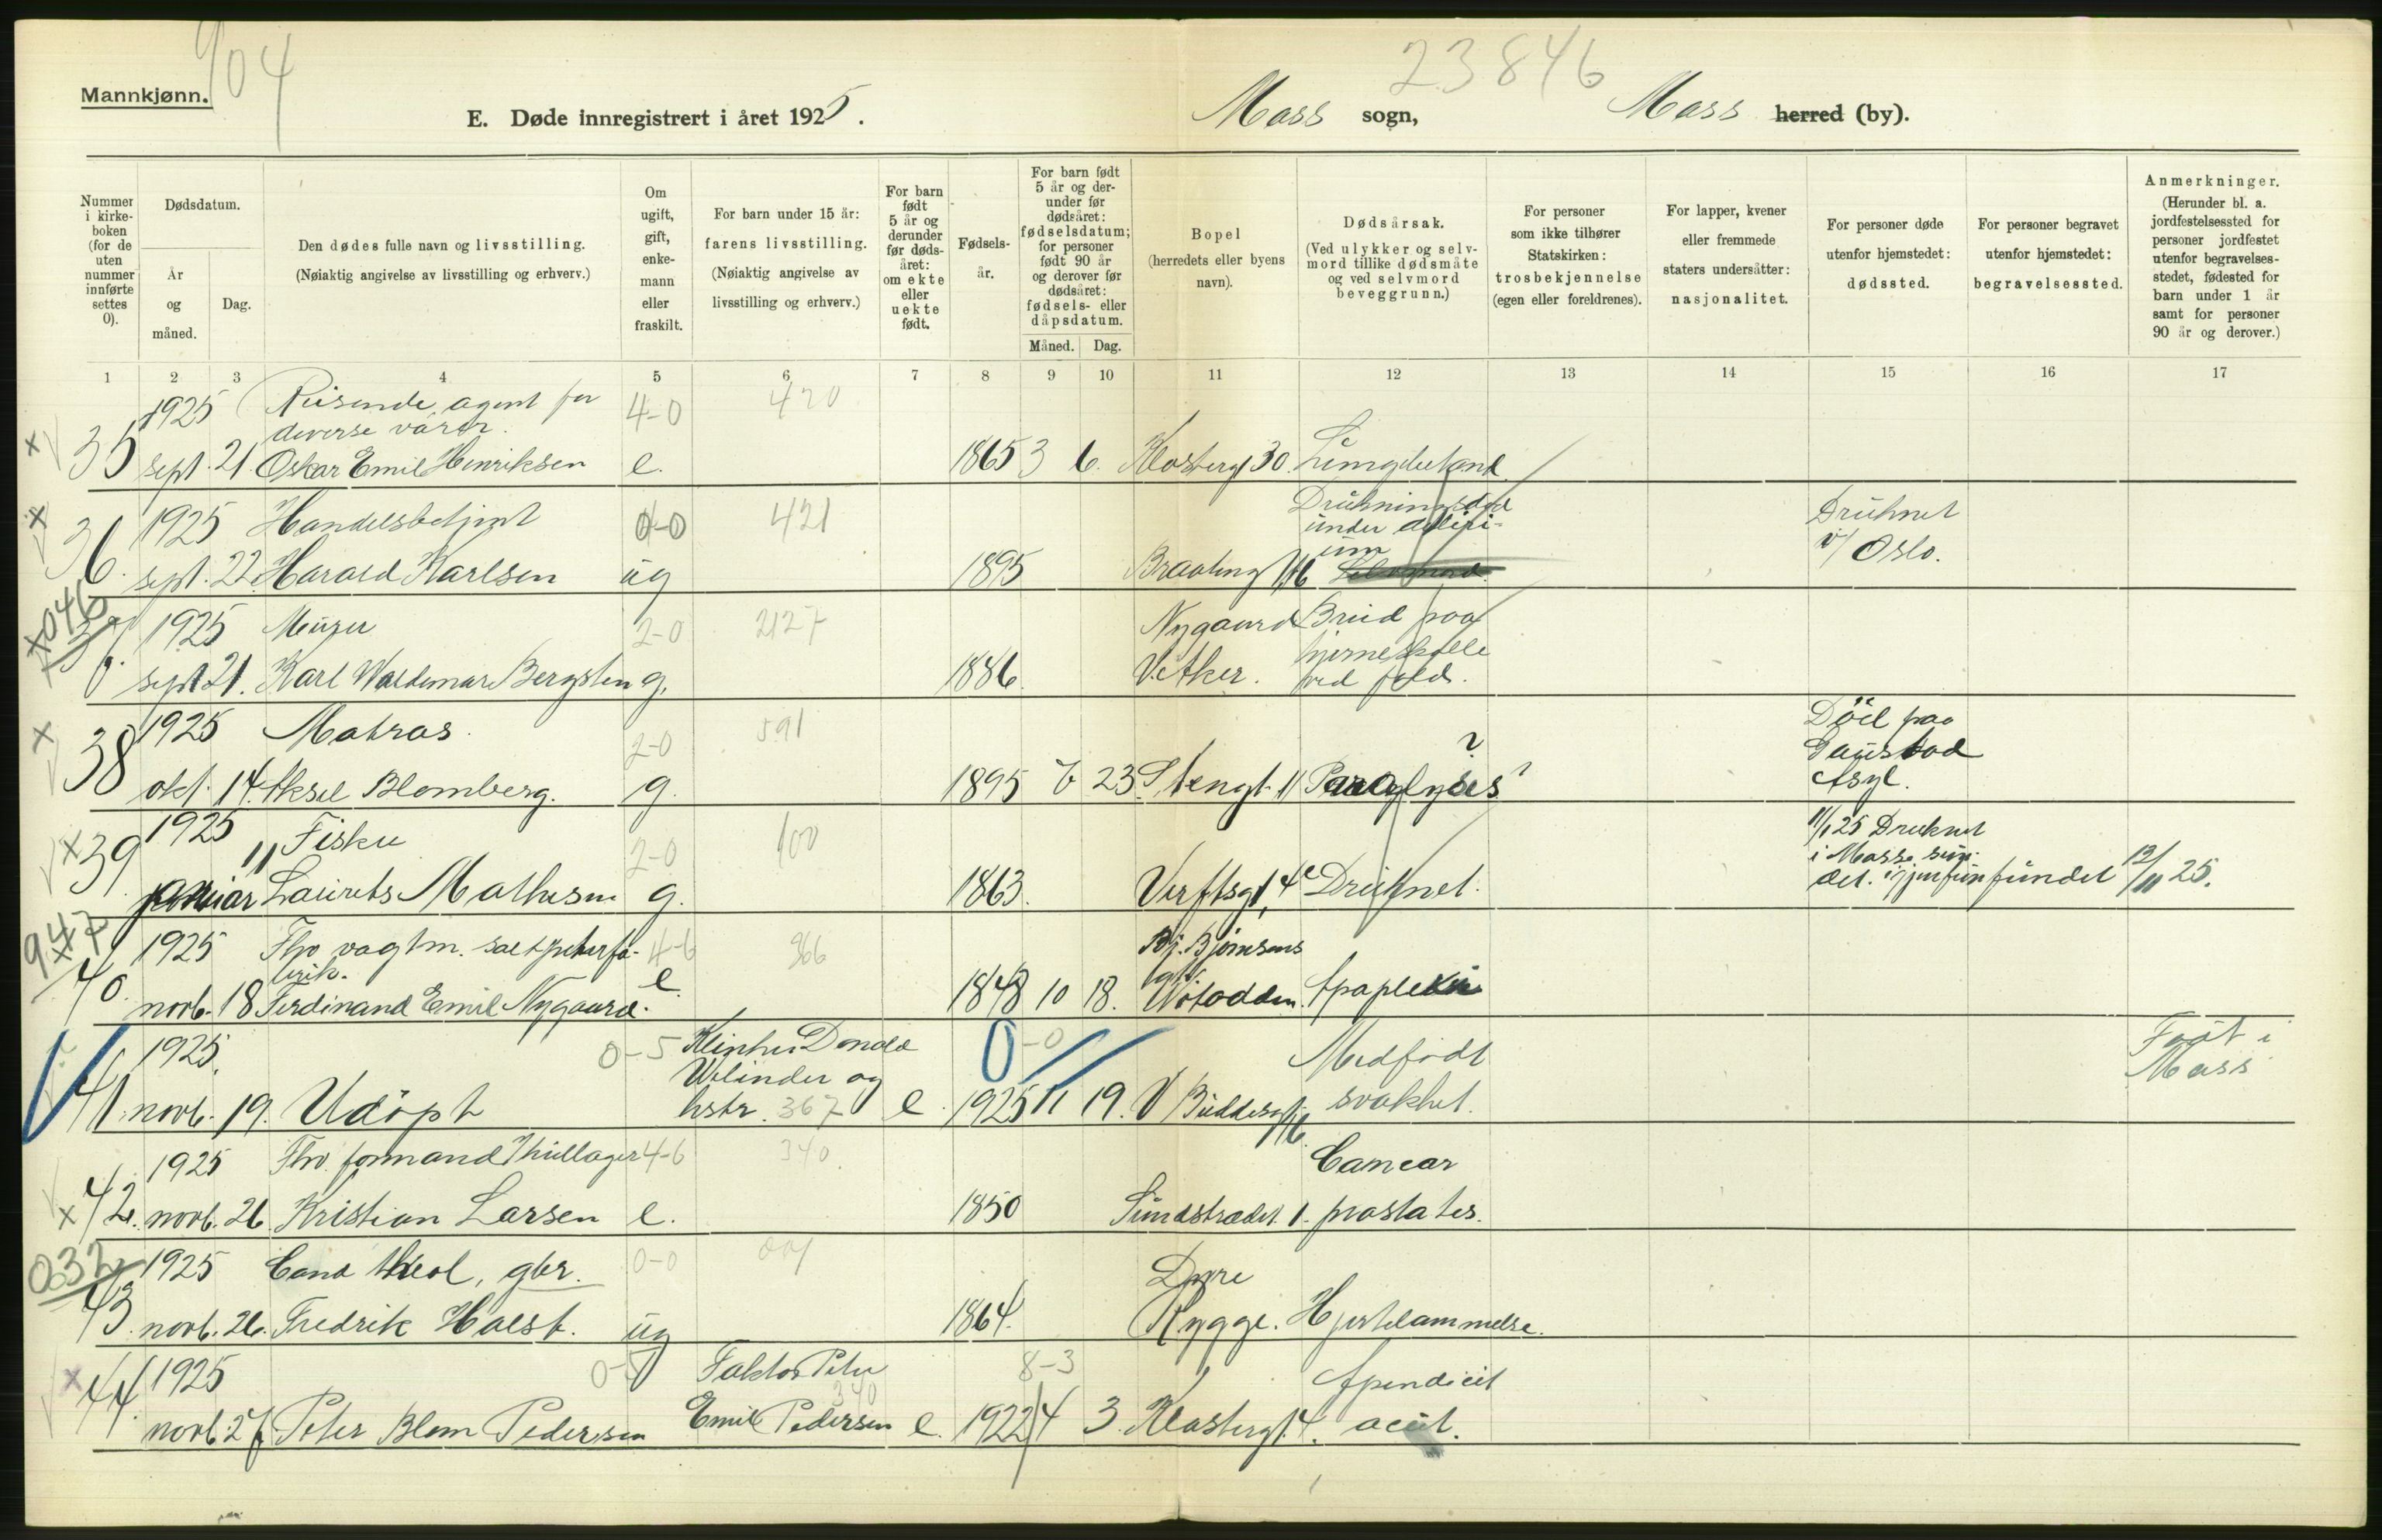 904
23846
Mannkjønn.
E. Døde innregistrert i året 1925.
Moss sogn, Moss herred (by).
Nummer i kirke-boken (for de uten nummer innførte settes 0).
Dødsdatum.
År og måned.
Dag.
Den dødes fulle navn og livsstilling.
(Nøiaktig angivelse av livsstilling og erhverv.)
Om ugift, gift, enke-mann eller fraskilt.
For barn under 15 år: farens livsstilling.
(Nøiaktig angivelse av livsstilling og erhverv.)
For barn født 5 år og derunder før døds-året: om ekte eller uekte født.
Fødsels-år.
For barn født 5 år og der-under før dødsåret: fødselsdatum; for personer født 90 år og derover før dødsåret: fødsels- eller dåpsdatum.
Måned. Dag.
Bopel (herredets eller byens navn).
Dødsårsak.
(Ved ulykker og selv-mord tillike dødsmåte og ved selvmord beveggrunn.)
For personer som ikke tilhører Statskirken: trosbekjennelse (egen eller foreldrenes).
For lapper, kvener eller fremmede staters undersåtter: nasjonalitet.
For personer døde utenfor hjemstedet: dødssted.
For personer begravet utenfor hjemstedet: begravelsessted.
Anmerkninger.
(Herunder bl. a. jordfestelsessted for personer jordfestet utenfor begravelses-stedet, fødested for barn under 1 år samt for personer 90 år og derover.)
1 2 3 4 5 6 7 8 9 10 11 12 13 14 15 16 17
1925 Reisende agent for 4-0 420
diverse varer.
35 sept. 21. Oskar Emil Henriksen e. 1865 3 6. Klostergt 30.
1925 Handelsbetjent 0-0 421 Drukningsdød
under deliri-
um
Druknet
v/ Oslo.
36. sept. 22. Harald Karlsen ug 1895 16
X046
1925 Murer 2-0 2127 Nygaard Brud paa
hjerneskalle
37 sept 21. Karl Waldemar Bergsten g. 1886. V. Aker. ved fald.
1925 Matros. 2-0 591 ?
Död paa
Gaustad
Asyl.
38 okt. 14. Aksel Blomberg. g. 1895 6 23. Stengt. 11 Paralyses?
1925 11 Fisker 2-0 100
11/1 25 Druknet
i Mosse sun-
det. igjenfun fundet 12/11 25.
39 januar Laurits Mathisen g. 1863. Verftsgt, 4c Druknet.
947
1925 Fhv vagtm. saltpeterfa- 4-6 966 Bj. Bjørnsens
brik. gt.
40. novb. 18 Ferdinand Emil Nygaard. e. 1848 10 18. Notodden. Apapleksi
1925. 0-5 Donald 0-0 Medfödt Födt i
Welinder og Moss
41. novb. 19. Udöpt hstr. 367 e. 1925 11 19. V Buddesgt. 16. svakhet.
1925 Fhv. formand 4-6 340. Cancar
42. novb. 26. Kristian Larsen e. 1850 Sundstrædet 1. prostates.
032
1925 Cand theol, gbr. 0-0 Dyre
43. novb. 26. Fredrik Holst. ug 1864. Rygge. Hjertelammelse.
1925 0-5 Faktor Peter 8-3 Apendicit
340
44. novb. 27. Peter Blom Pedersen Emil Pedersen e. 1922 4 3. Klostergt. 4. acut.